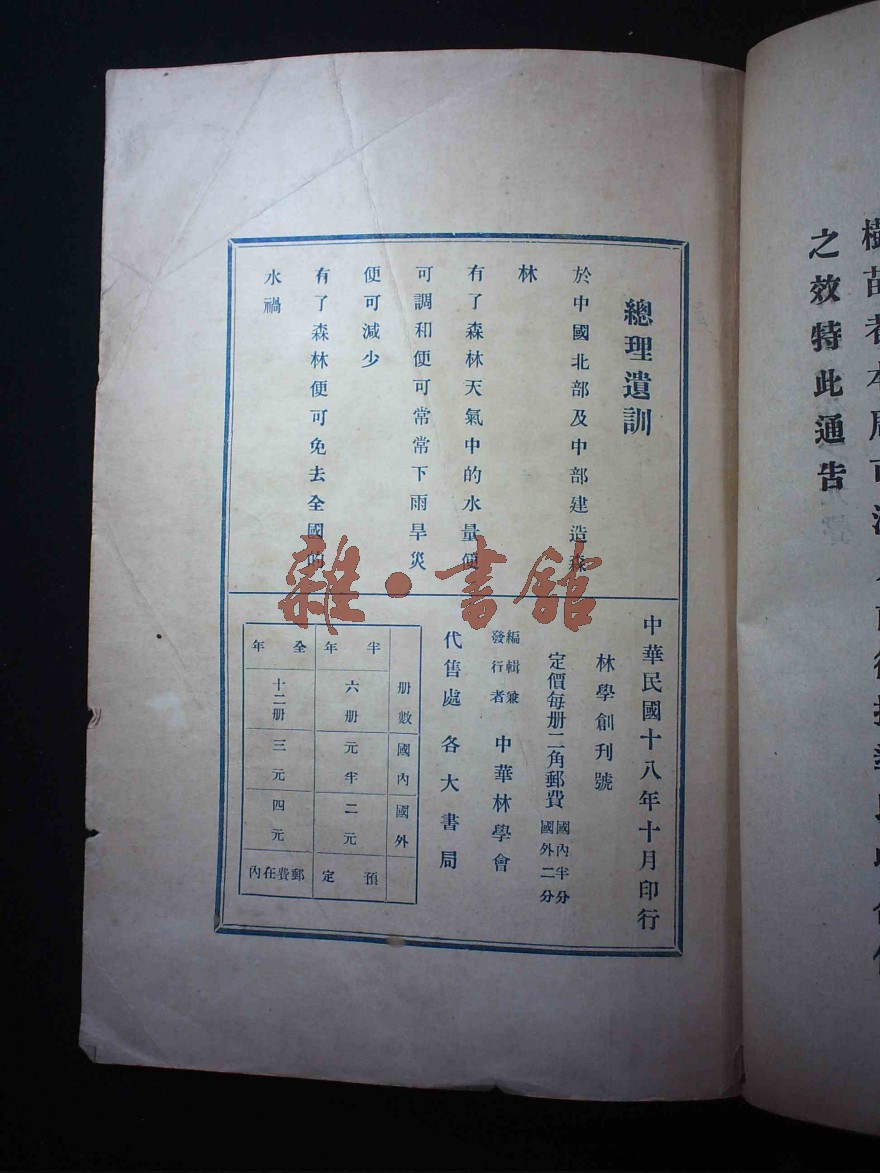 樹苗者本局可
之效特此通告
總理遺訓
於中國北部及中部建造森
林
有了森林天氣中的水量便
可調和便可常常下雨旱災
便可減少
有了森林便可免去全國的
水禍
中華民國十八年十月印行
林學創刊號
定價每册二角郵費 國內半分 國外二分
編輯兼發行者 中華林學會
代售處 各大書局
册數 國內 國外
半年 六册 元半 二元 預定
全年 十二册 三元 四元 郵費在內
雜·書館